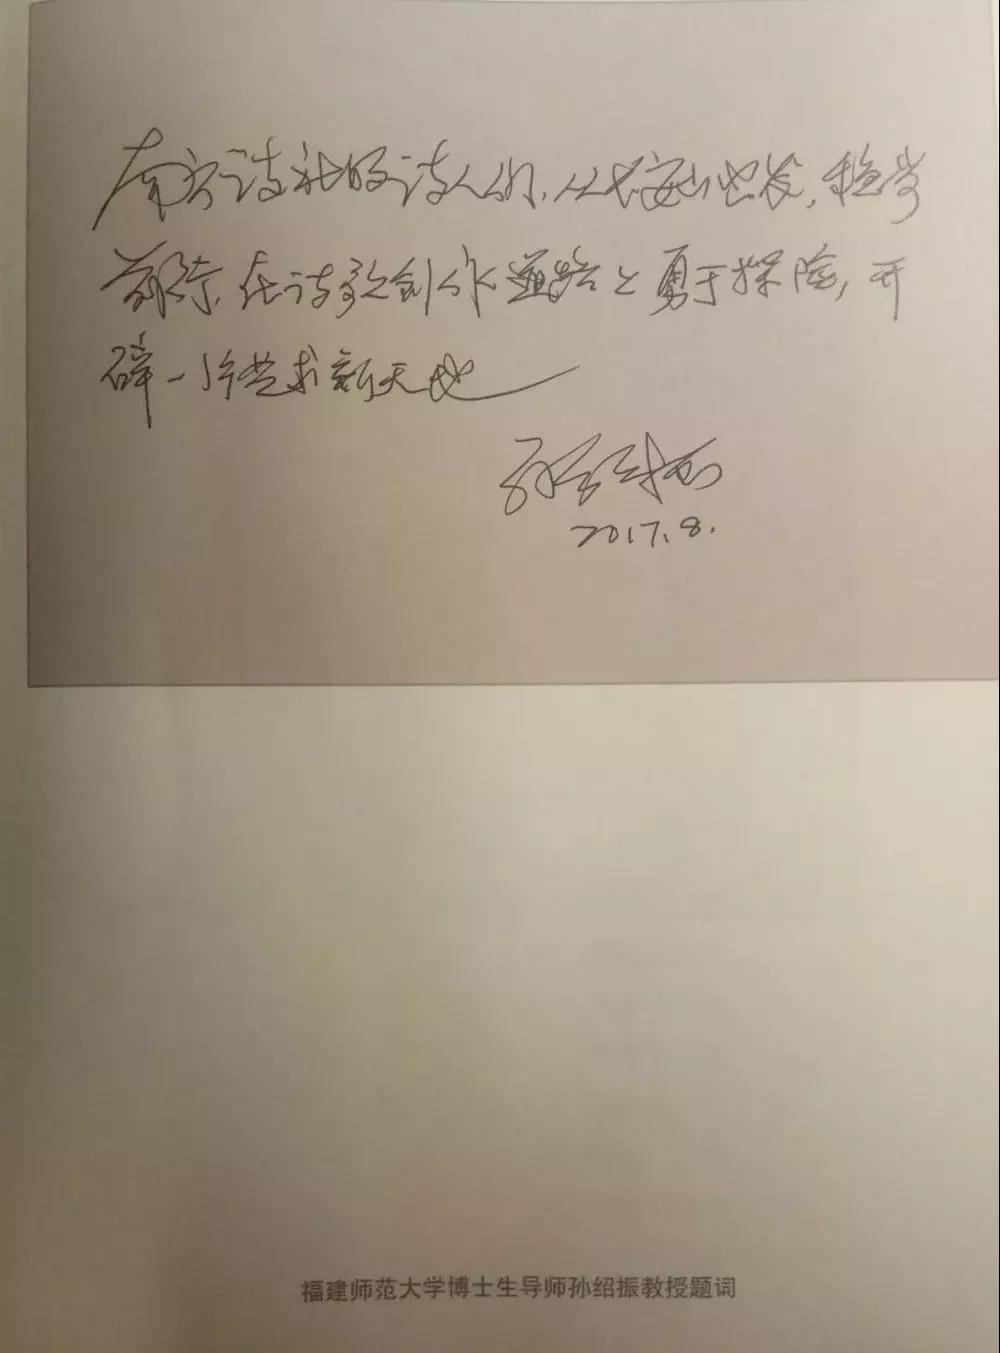 南方诗社的诗人们,从长安山出发,稳步
前行,在诗歌创作道路上勇于探险,开
辟一片艺术新天地
孙绍振
2017.8.
福建师范大学博士生导师孙绍振教授题词